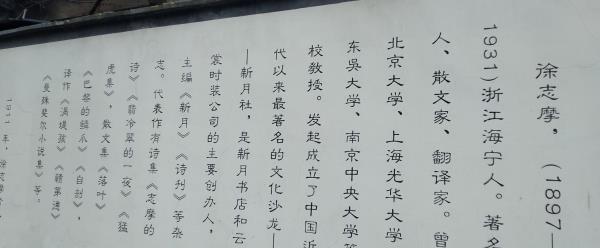 徐志摩，（1897—
1931)浙江海宁人。著名
人、散文家、翻译家。曾
北京大学、上海光华大学
东吴大学、南京中央大学等
校教授。发起成立了中国近
代以来最著名的文化沙龙—
—新月社，是新月书店和云
裳时装公司的主要创办人，
主编《新月》《诗刊》等杂
志。代表作有诗集《志摩的
诗》《翡冷翠的一夜》《猛
虎集》，散文集《落叶》
《巴黎的鳞爪》《自剖》，
译作《涡堤孩》《赣第德》
《曼殊斐尔小说集》等。
1911 年，徐志摩